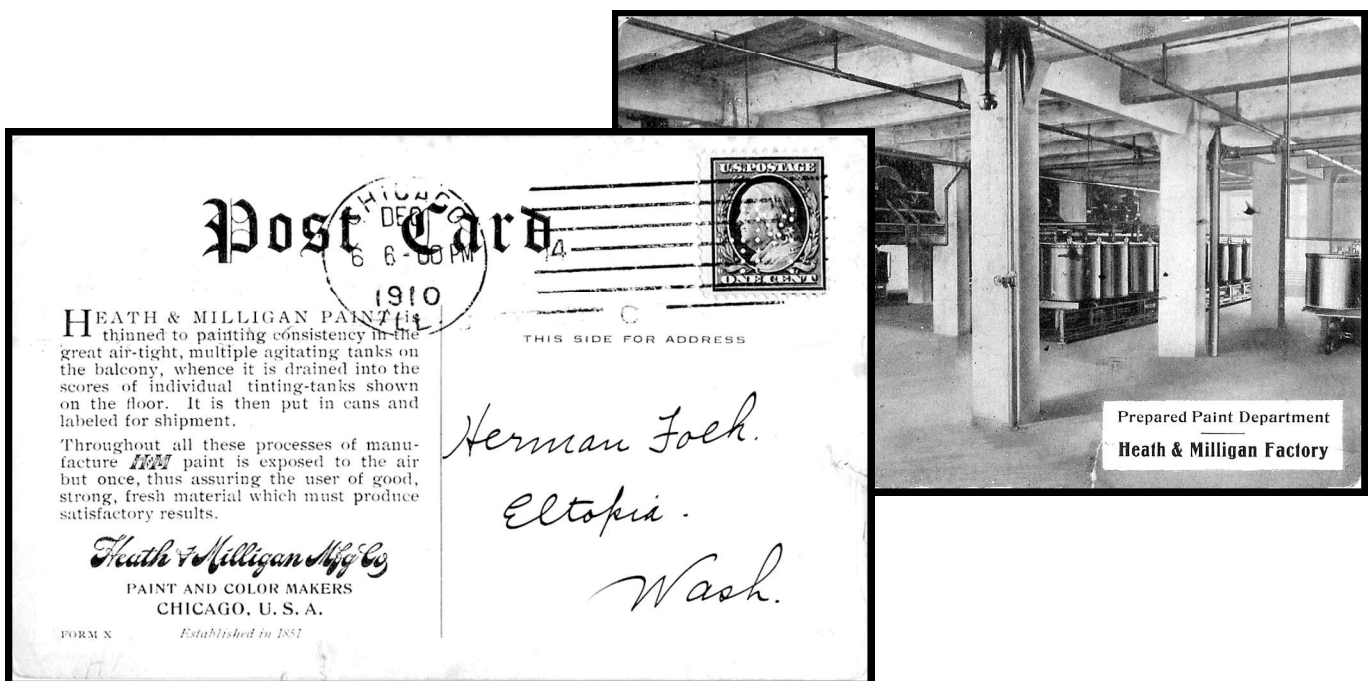 Post Card
CHICAGO
DEC
6 6-00 PM
1910
ILL
14
C
U.S. POSTAGE
ONE CENT
HEATH & MILLIGAN PAINT is
thinned to painting consistency in the
great air-tight, multiple agitating tanks on
the balcony, whence it is drained into the
scores of individual tinting-tanks shown
on the floor. It is then put in cans and
labeled for shipment.
Throughout all these processes of manu-
facture H&M paint is exposed to the air
but once, thus assuring the user of good,
strong, fresh material which must produce
satisfactory results.
Heath & Milligan Mfg Co,
PAINT AND COLOR MAKERS
CHICAGO, U. S. A.
FORM X
Established in 1851
THIS SIDE FOR ADDRESS
Herman
Eltopia.
Wash.
Prepared Paint Department
Heath & Milligan Factory